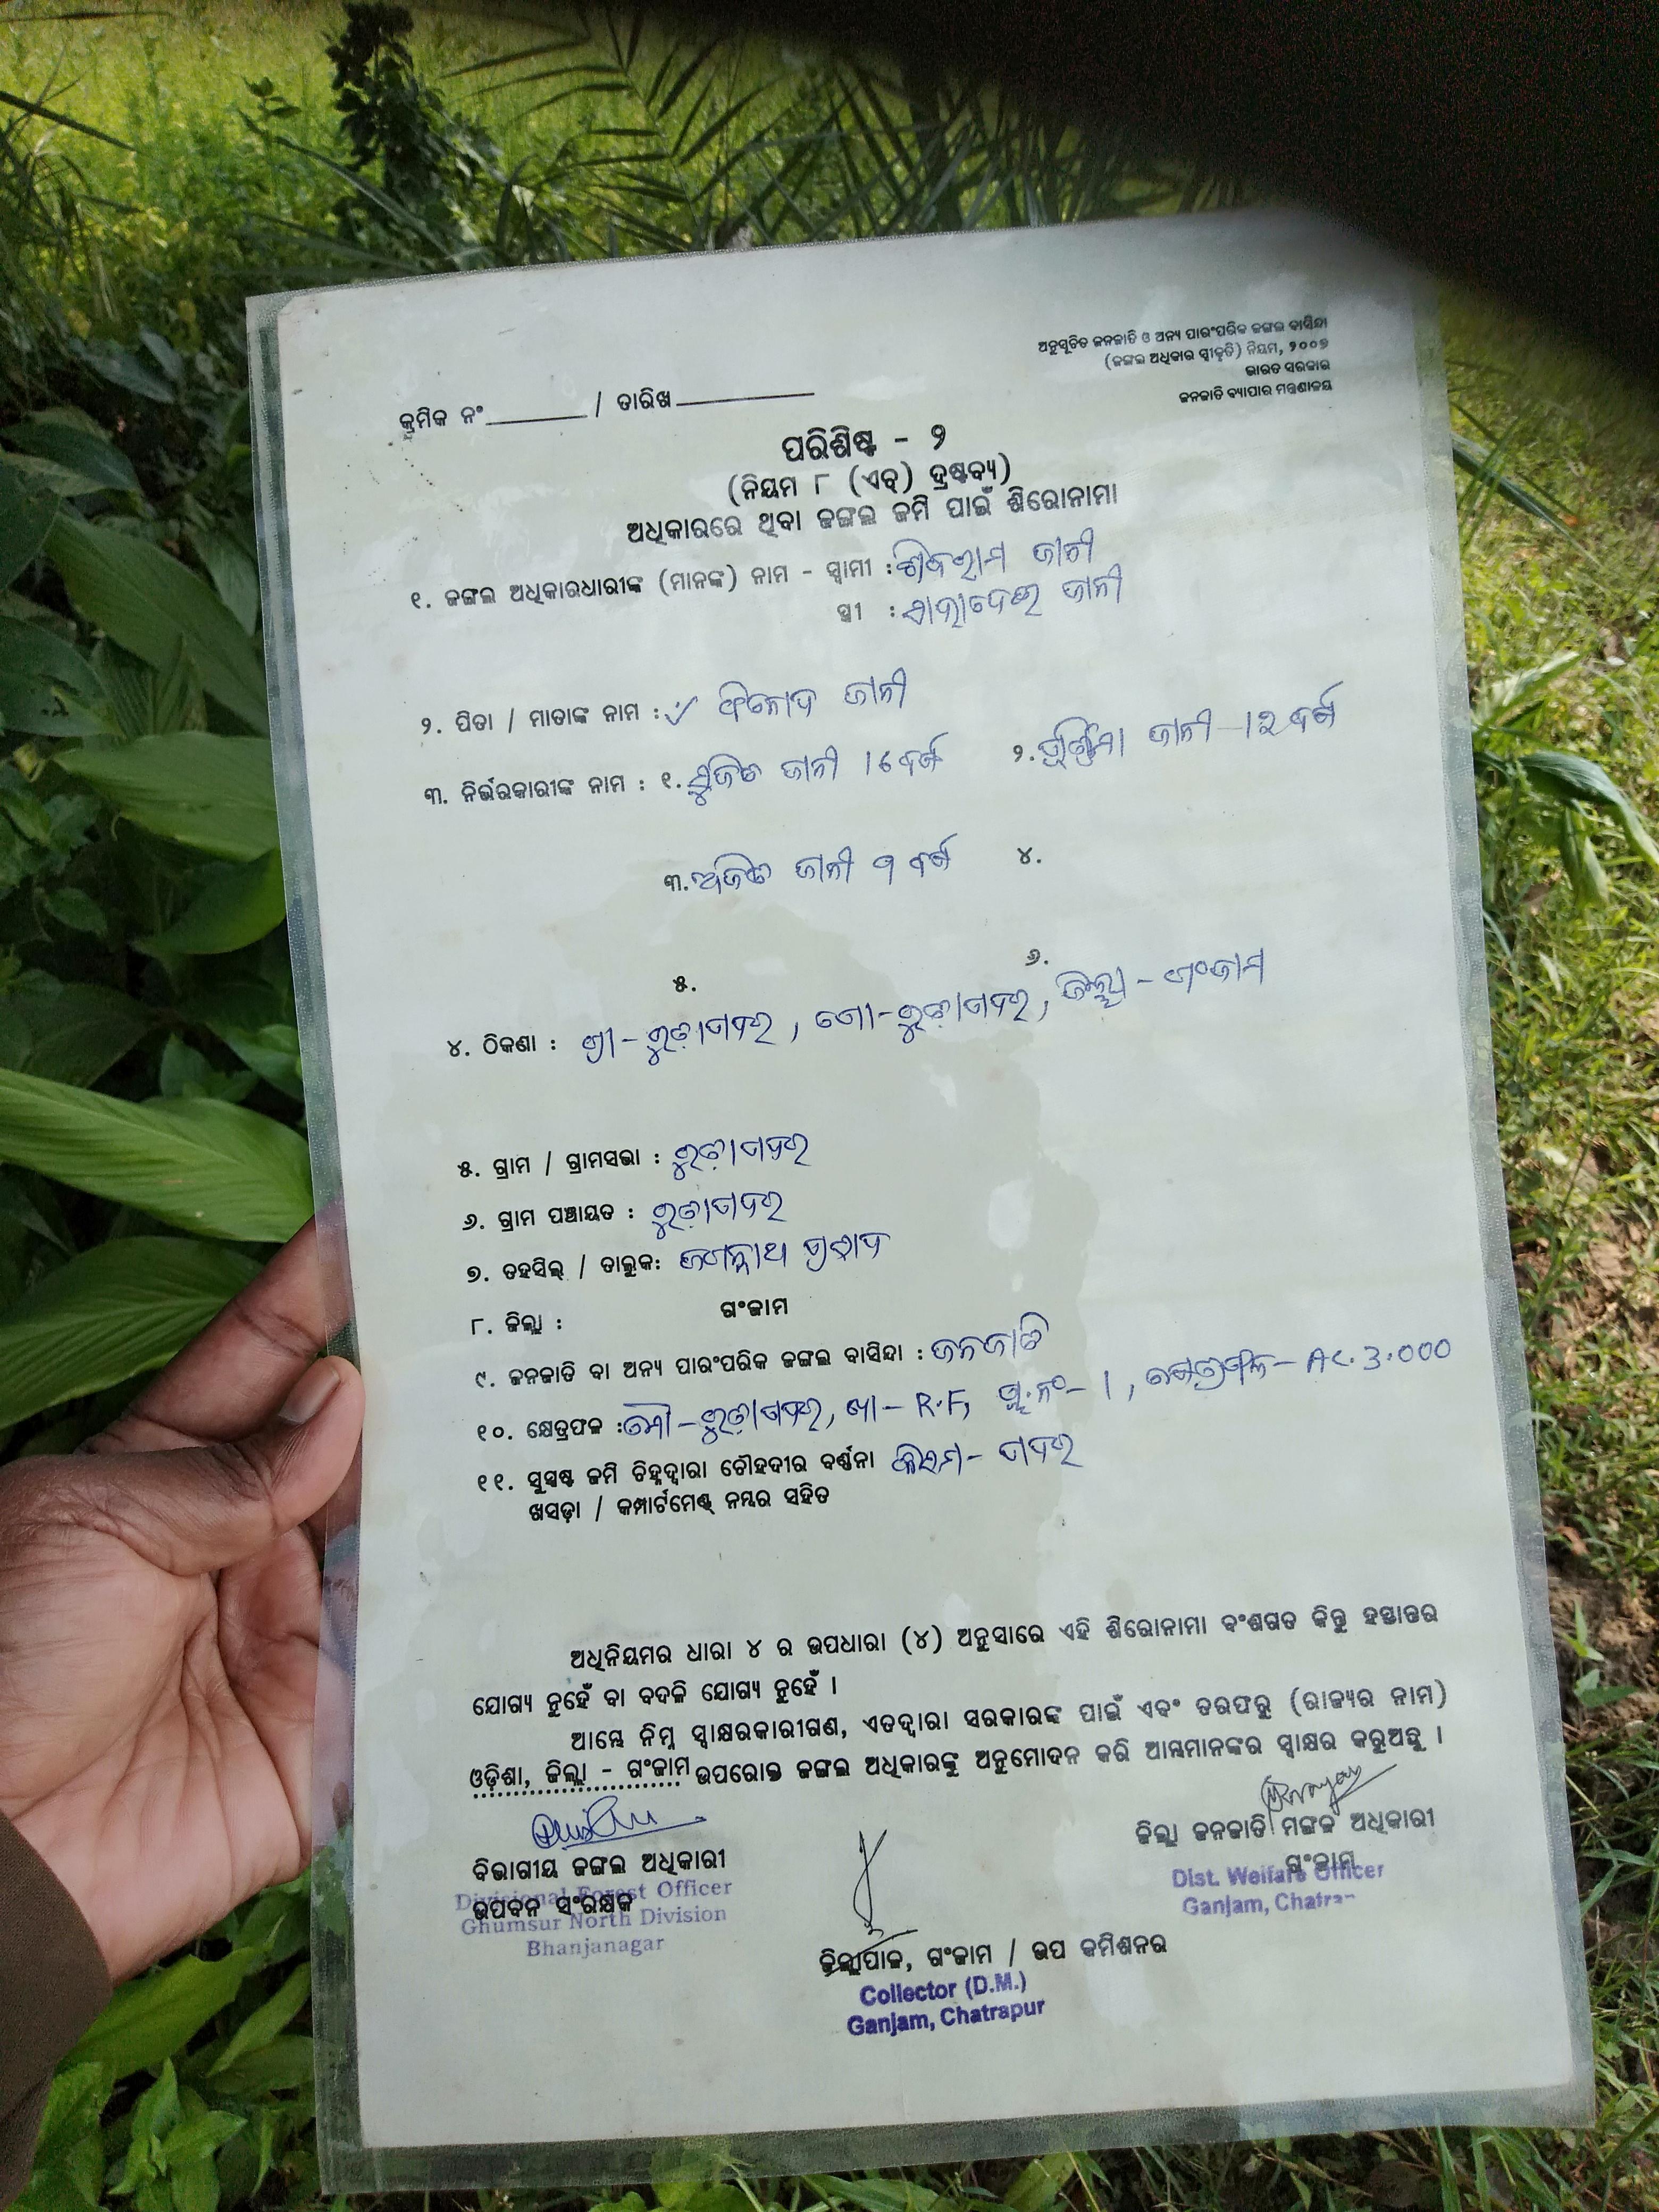 ଅନୁସୂଚିତ ଜନଜାତି ଓ ଅନ୍ୟ ପାରଂପରିକ ଜଙ୍ଗଲ ବାସିନ୍ଦା
(ଜଙ୍ଗଲ ଅଧିକାର ସ୍ୱୀକୃତି) ନିୟମ, ୨୦୦୭
ଭାରତ ସରକାର
ଜନଜାତି ବ୍ୟାପାର ମନ୍ତ୍ରଣାଳୟ
କ୍ରମିକ ନଂ / ତାରିଖ
ପରିଶିଷ୍ଟ - ୨
(ନିୟମ ୮ (ଏଚ୍) ଦ୍ରଷ୍ଟବ୍ୟ)
ଅଧିକାରରେ ଥିବା ଜଙ୍ଗଲ ଜମି ପାଇଁ ଶିରୋନାମା
୧. ଜଙ୍ଗଲ ଅଧିକାରଧାରୀଙ୍କ (ମାନଙ୍କ) ନାମ - ସ୍ୱାମୀ : ଶିବରାମ ଜାନୀ
ସ୍ତ୍ରୀ : ଜାନୀ
୨. ପିତା / ମାତାଙ୍କ ନାମ : ଜାନୀ
୩. ନିର୍ଭରକାରୀଙ୍କ ନାମ : ୧. ସୁଜିତ ଜାନୀ 16 ବର୍ଷ ୨. ପୂର୍ଣ୍ଣିମା ଜାନୀ - 12 ବର୍ଷ
୩. ଅଜିତ ଜାନୀ ୩ ବର୍ଷ ୪.
୫. ୬.
୪. ଠିକଣା : ଗ୍ରା - ବୁଢ଼ାଗଦର, ପୋ - ବୁଢ଼ାଗଦର, ଜିଲ୍ଲା - ଗଂଜାମ
୫. ଗ୍ରାମ / ଗ୍ରାମସଭା : ବୁଢ଼ାଗଦର
୬. ଗ୍ରାମ ପଞ୍ଚାୟତ : ବୁଢ଼ାଗଦର
୭. ତହସିଲ୍ / ତାଲୁକ: ଜଗନ୍ନାଥ ପ୍ରସାଦ
୮. ଜିଲ୍ଲା : ଗଂଜାମ
୯. ଜନଜାତି ବା ଅନ୍ୟ ପାରଂପରିକ ଜଙ୍ଗଲ ବାସିନ୍ଦା : ଜନଜାତି
୧୦. କ୍ଷେତ୍ରଫଳ : ମୌ - ବୁଢ଼ାଗଦର, ଖା - R.F, ପ୍ଲ.ନଂ - 1, କ୍ଷେତ୍ରଫଳ - AC. 3.000
୧୧. ସୁସ୍ପଷ୍ଟ ଜମି ଚିହ୍ନଦ୍ୱାରା ଚୌହଦୀର ବର୍ଣ୍ଣନା କିସମ - ଗଦର
ଖସଡ଼ା / କମ୍ପାର୍ଟମେଣ୍ଟ୍ ନମ୍ବର ସହିତ
ଅଧିନିୟମର ଧାରା ୪ ର ଉପଧାରା (୪) ଅନୁସାରେ ଏହି ଶିରୋନାମା ବଂଶଗତ କିନ୍ତୁ ହସ୍ତାନ୍ତର
ଯୋଗ୍ୟ ନୁହେଁ ବା ବଦଳି ଯୋଗ୍ୟ ନୁହେଁ ।
ଆମ୍ଭେ ନିମ୍ନ ସ୍ୱାକ୍ଷରକାରୀଗଣ, ଏତଦ୍ଦ୍ୱାରା ସରକାରଙ୍କ ପାଇଁ ଏବଂ ତରଫରୁ (ରାଜ୍ୟର ନାମ)
ଓଡ଼ିଶା, ଜିଲ୍ଲା - ଗଂଜାମ ଉପରୋକ୍ତ ଜଙ୍ଗଲ ଅଧିକାରଙ୍କୁ ଅନୁମୋଦନ କରି ଆମ୍ଭମାନଙ୍କର ସ୍ୱାକ୍ଷର କରୁଅଛୁ ।
ଜିଲ୍ଲା ଜନଜାତି ମଙ୍ଗଳ ଅଧିକାରୀ
ଗଂଜାମ
Dist. Welfare Officer
Ganjam,
ବିଭାଗୀୟ ଜଙ୍ଗଲ ଅଧିକାରୀ
ଉପବନ ସଂରକ୍ଷକ
Divisional Forest Officer
Ghumsur North Division
Bhanjanagar
ଜିଲ୍ଲାପାଳ, ଗଂଜାମ / ଉପ କମିଶନର
Collector (D.M.)
Ganjam, Chatrapur